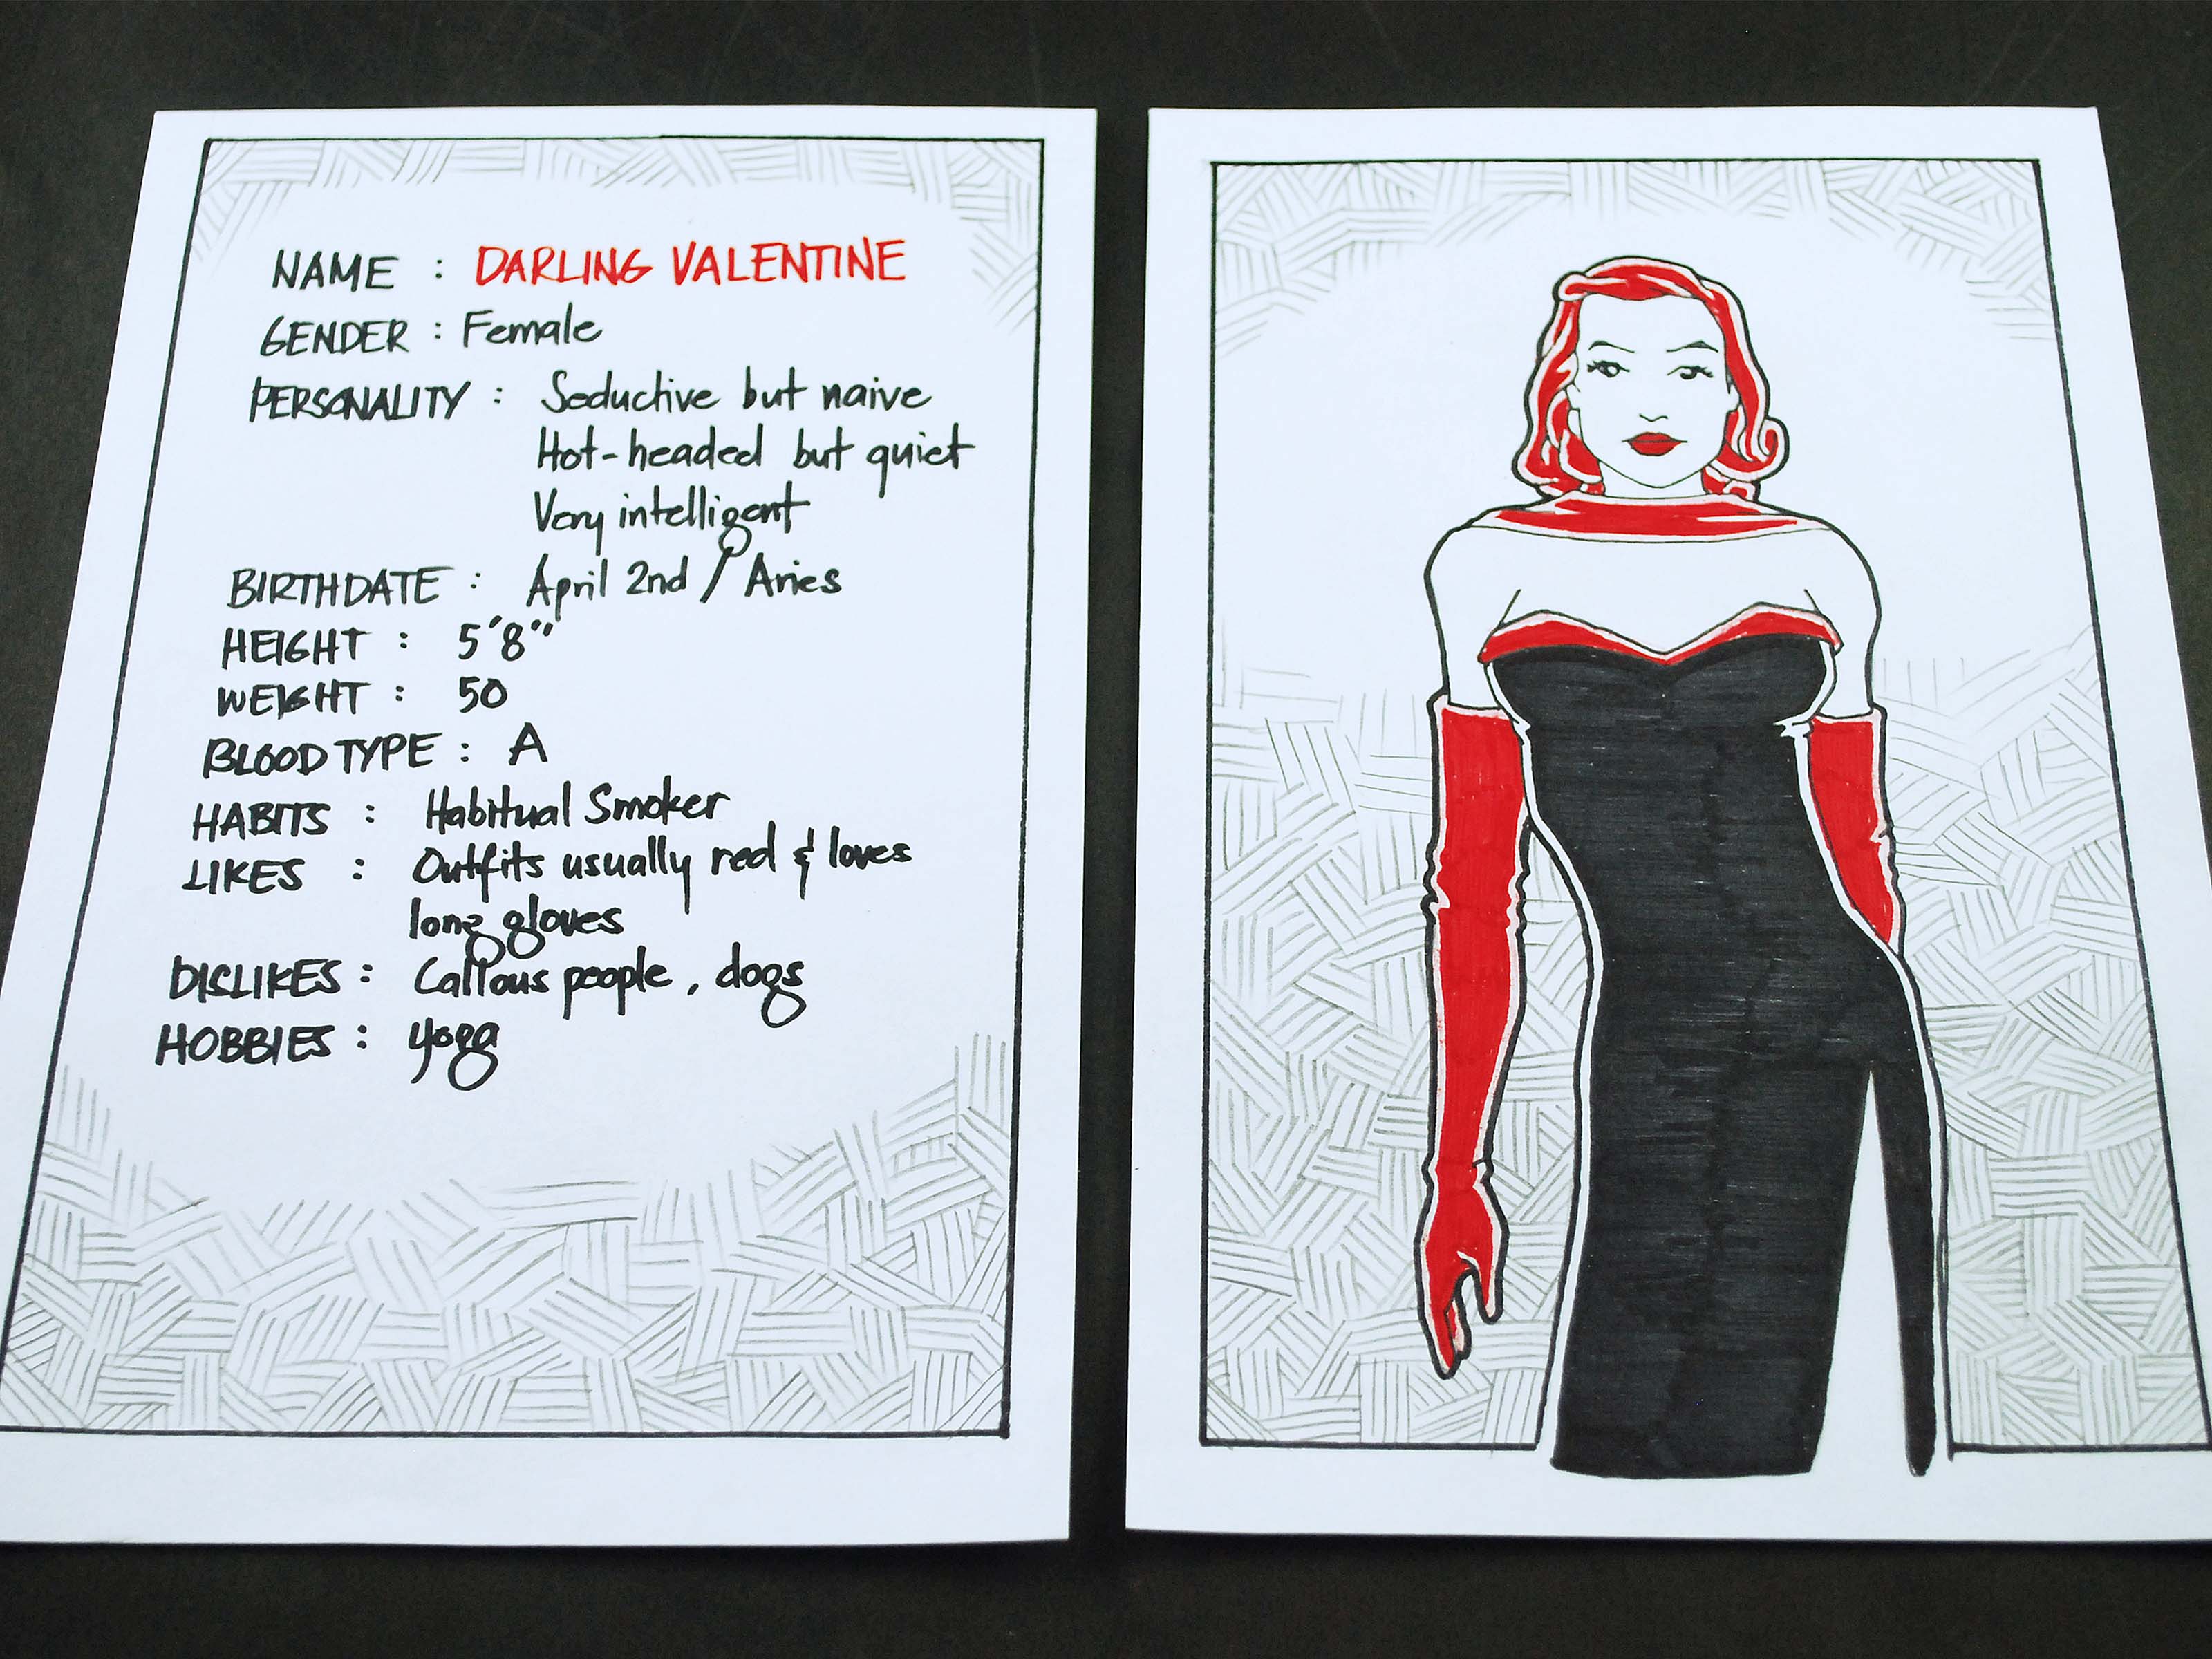 NAME : DARLING VALENTINE
GENDER : Female
PERSONALITY : Seductive but naive
Hot-headed but quiet
Very intelligent
BIRTHDATE : April 2nd / Aries
HEIGHT : 5'8"
WEIGHT : 50
BLOOD TYPE : A
HABITS : Habitual Smoker
LIKES : Outfits usually red & loves
long gloves
DISLIKES : Callous people, dogs
HOBBIES : yoga